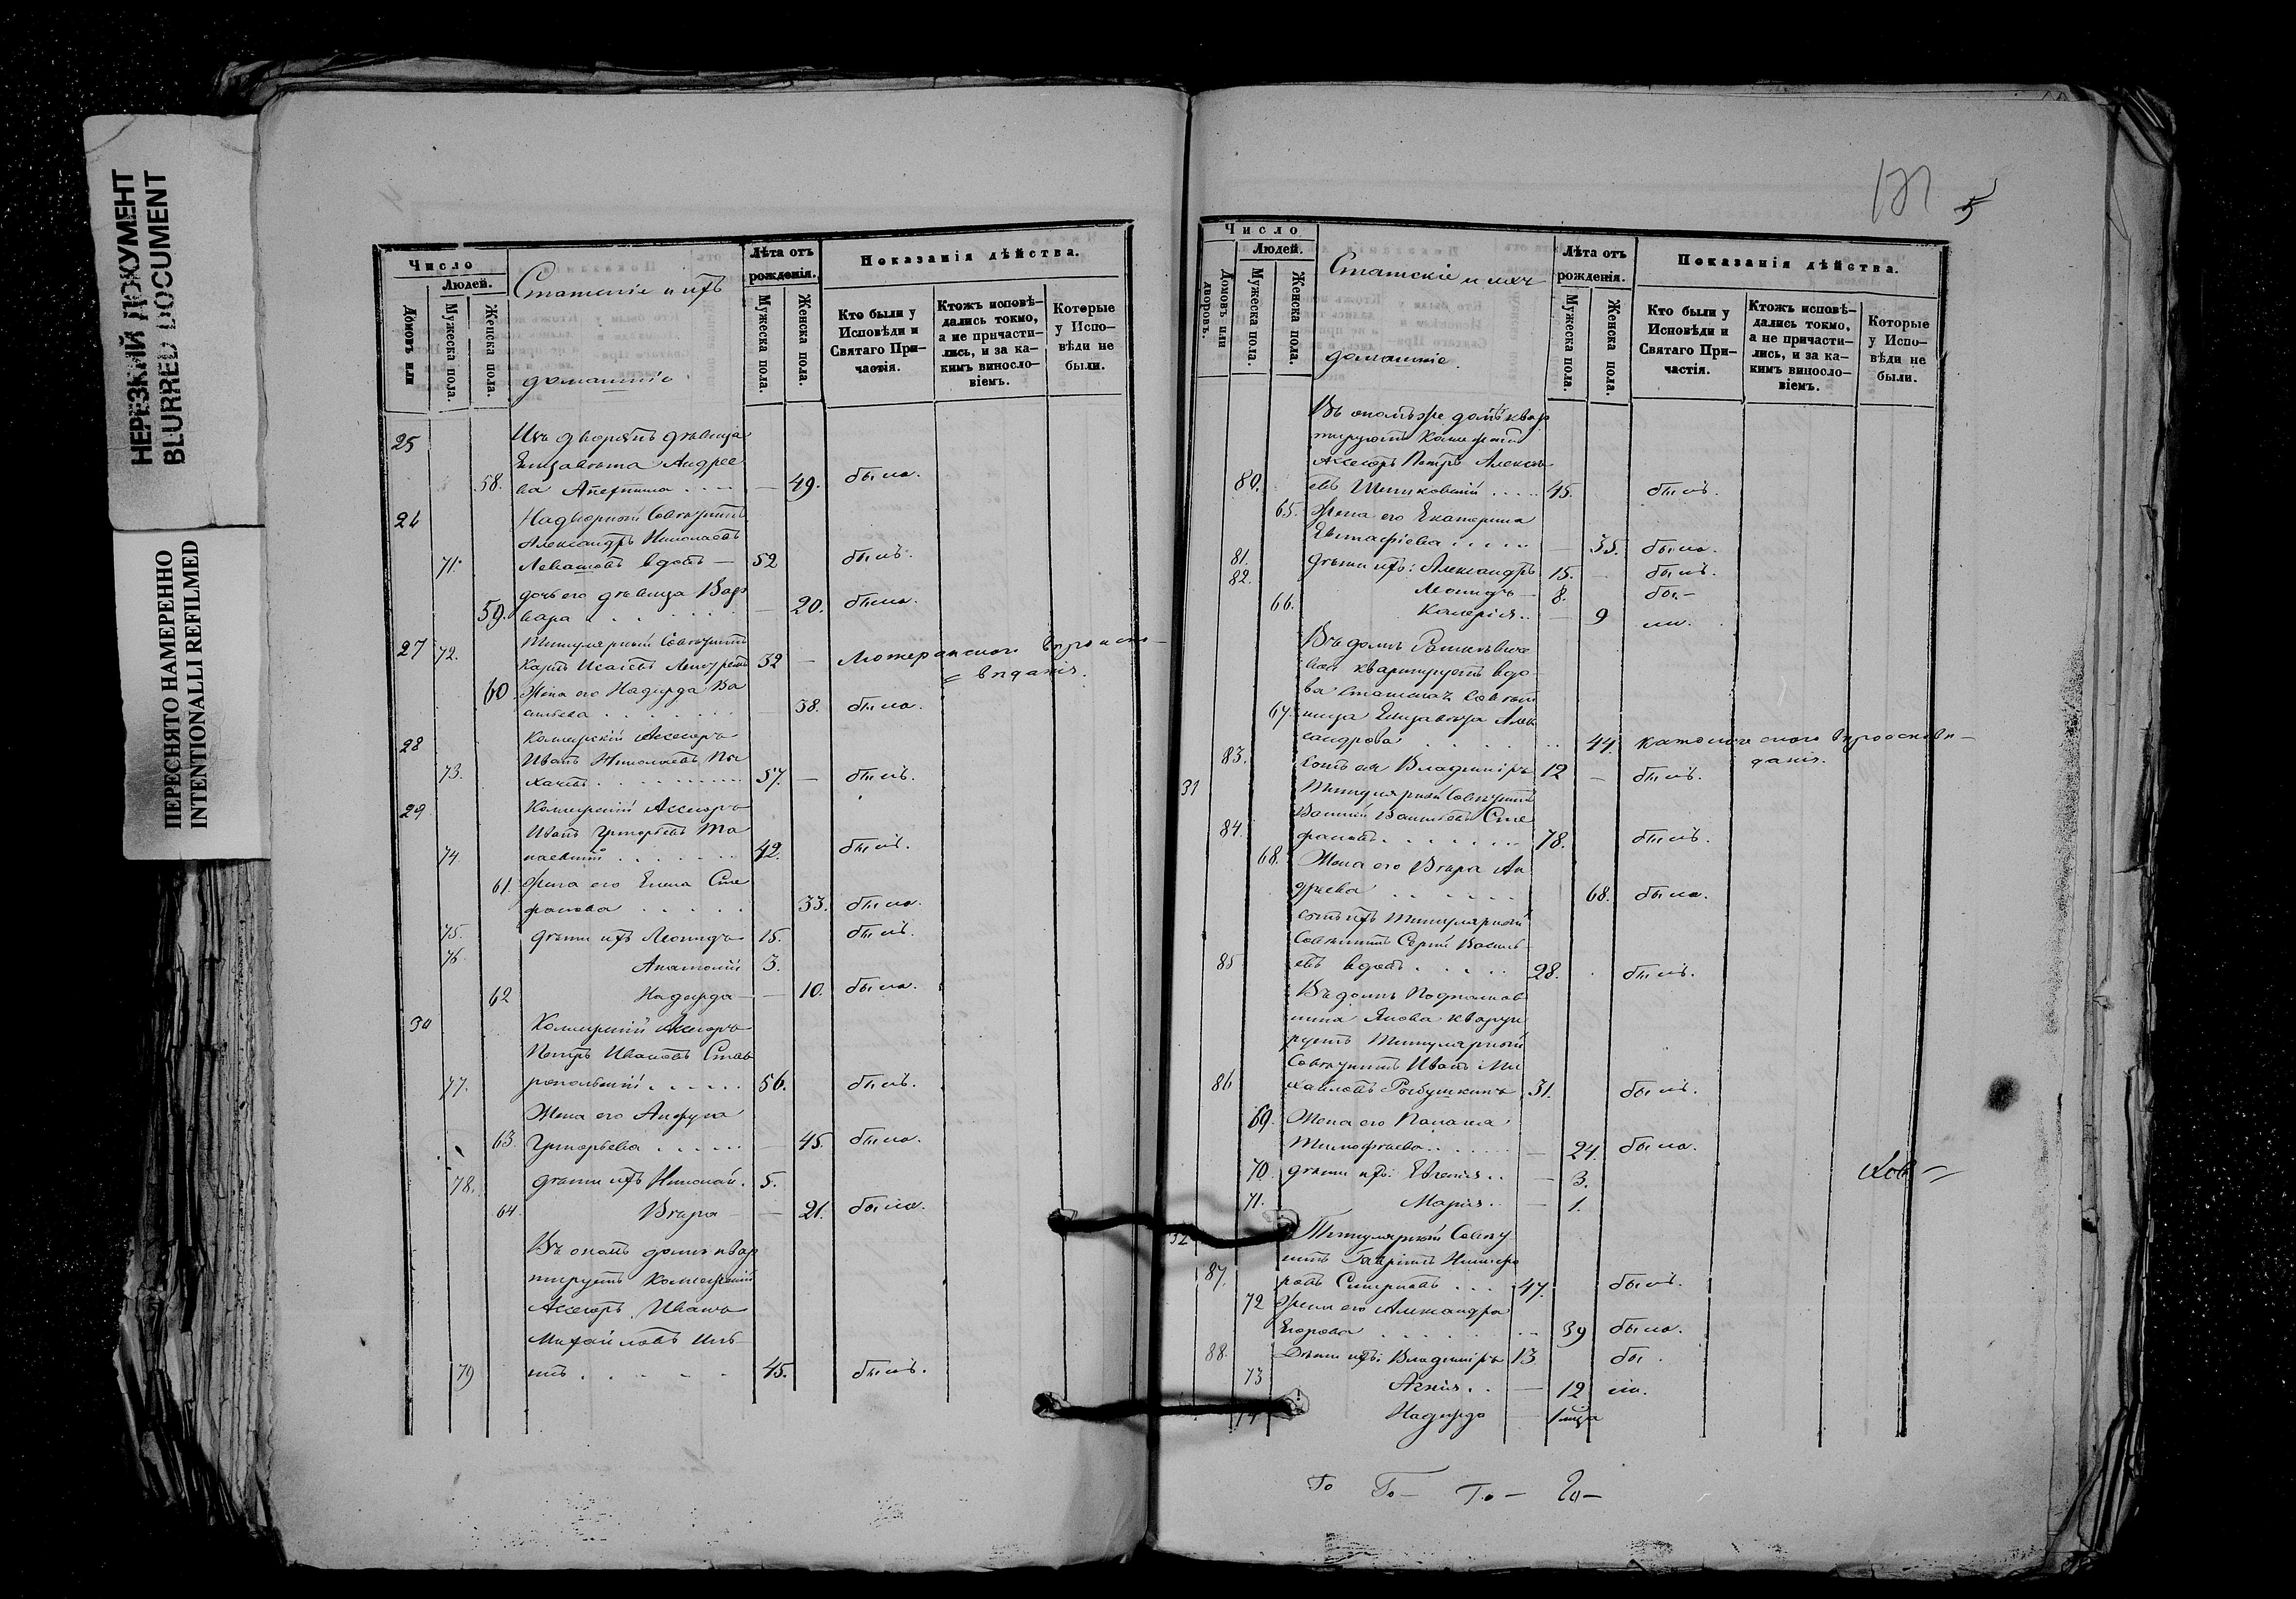 НЕРЕЗКИЙ ДОКУМЕНТ
BLURRED DOCUMENT
ПЕРЕСНЯТО НАМЕРЕННО
INTENTIONALLI REFILMED
Число
Людей.
Домовъ или
Мужеска пола.
Женска пола.
Статскіе и ихъ
домашніе
Лѣта отъ
рожденія.
Мужеска пола.
Женска пола.
Показанія дѣйства.
Кто были у
Исповѣди и
Святаго При-
частія.
Ктожъ исповѣ-
дались токмо,
а не причасти-
лись, и за ка-
кимъ виносло-
віемъ.
Которые
у Испо-
вѣди не
были.
25 Изъ дворянъ дѣвица
Елизавета Андрее
58. ва 49. была.
26 Надворный Совѣтникъ
Александръ Николаевъ
71. Левашовъ вдовъ — 52 былъ.
дочь его дѣвица Вар
59. вара — 20. была.
27 72. Титулярный Совѣтникъ
Карлъ 32 — Лютеранскаго вѣроиспо-
= вѣданія.
60 Жена его Надежда Ва
сильева 38. была.
28 Коллежскій Ассесоръ
Иванъ Николаевъ
73. 57. — былъ.
29 Коллежскій Ассесоръ
Иванъ Григорьевъ
74. 42. былъ.
61. Жена его Елена Сте
фанова 33. была.
75. дѣти ихъ Леонидъ 15. былъ.
76. Анатолій 3.
62 Надежда — 10. была.
30 Коллежскій Ассесоръ
Петръ Ивановъ Став
77. ропольскій 56. былъ.
Жена его
63. Григорьева — 45. была.
78. дѣти ихъ Николай. 5.
64. Вѣра — 21. была.
Въ ономъ домѣ квар
тируетъ Коллежскій
Ассесоръ Иванъ
Михайловъ Иль
79 инъ 45. былъ.
5
Число
Людей.
Домовъ или
дворовъ.
Мужеска пола.
Женска пола.
Статскіе и ихъ
домашніе.
Лѣта отъ
рожденія.
Мужеска пола.
Женска пола.
Показанія дѣйства.
Кто были у
Исповѣди и
Святаго При-
частія.
Ктожъ исповѣ-
дались токмо,
а не причасти-
лись, и за ка-
кимъ виносло-
віемъ.
Которые
у Испо-
вѣди не
были.
Въ ономъ же домѣ квар
тируютъ Коллежскій
Ассесоръ Петръ Алексѣ
80. евъ 45. былъ.
65. Жена его Екатерина
Евстафіева — 35. была.
81. дѣти ихъ: Александръ 15. — былъ.
82. Леонидъ — 8. бы-
66. Калерія — 9 ли.
Въ домѣ
вой квартируетъ вдо
ва статская Совѣт
67. ница Елизавета Алек
сандрова 44. Католическаго вѣроисповѣ-
данія.
83. Сынъ ея Владиміръ 12 — былъ.
31 Титулярный Совѣтникъ
Василій Васильевъ Сте
84. фановъ 78. былъ.
68. Жена его Вѣра Ан
дреева 68. была.
сынъ ихъ Титулярный
Совѣтникъ Сергій Василь
85 евъ вдовъ 28. былъ.
Въ домѣ Подполков
ника Янова кварти
руетъ Титулярный
Совѣтникъ Иванъ Ми
86 хайловъ Рыбушкинъ 31. былъ.
69. Жена его
Тимофѣева — 24. была.
70. дѣти ихъ: Евгенія — 3.
71. Марія — 1.
32 Титулярный Совѣт
никъ Гавріилъ Никифо
87. ровъ Смирновъ 47. былъ.
72 Жена его Александра
Егорова 39 была.
88. Дѣти ихъ: Владиміръ 13. бы
73 Агнія — 12 ли.
74 Надежда —